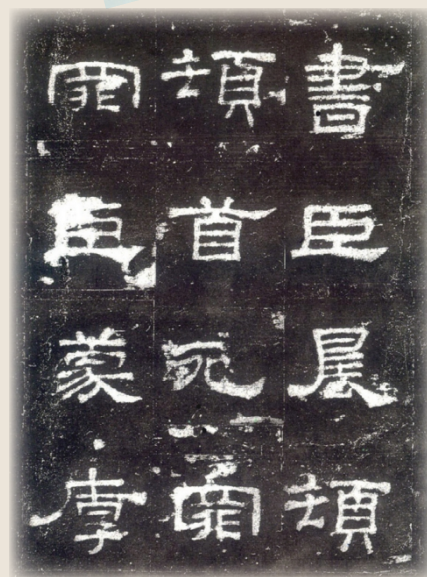 書臣晨頓
頓首死罪
罪臣蒙厚